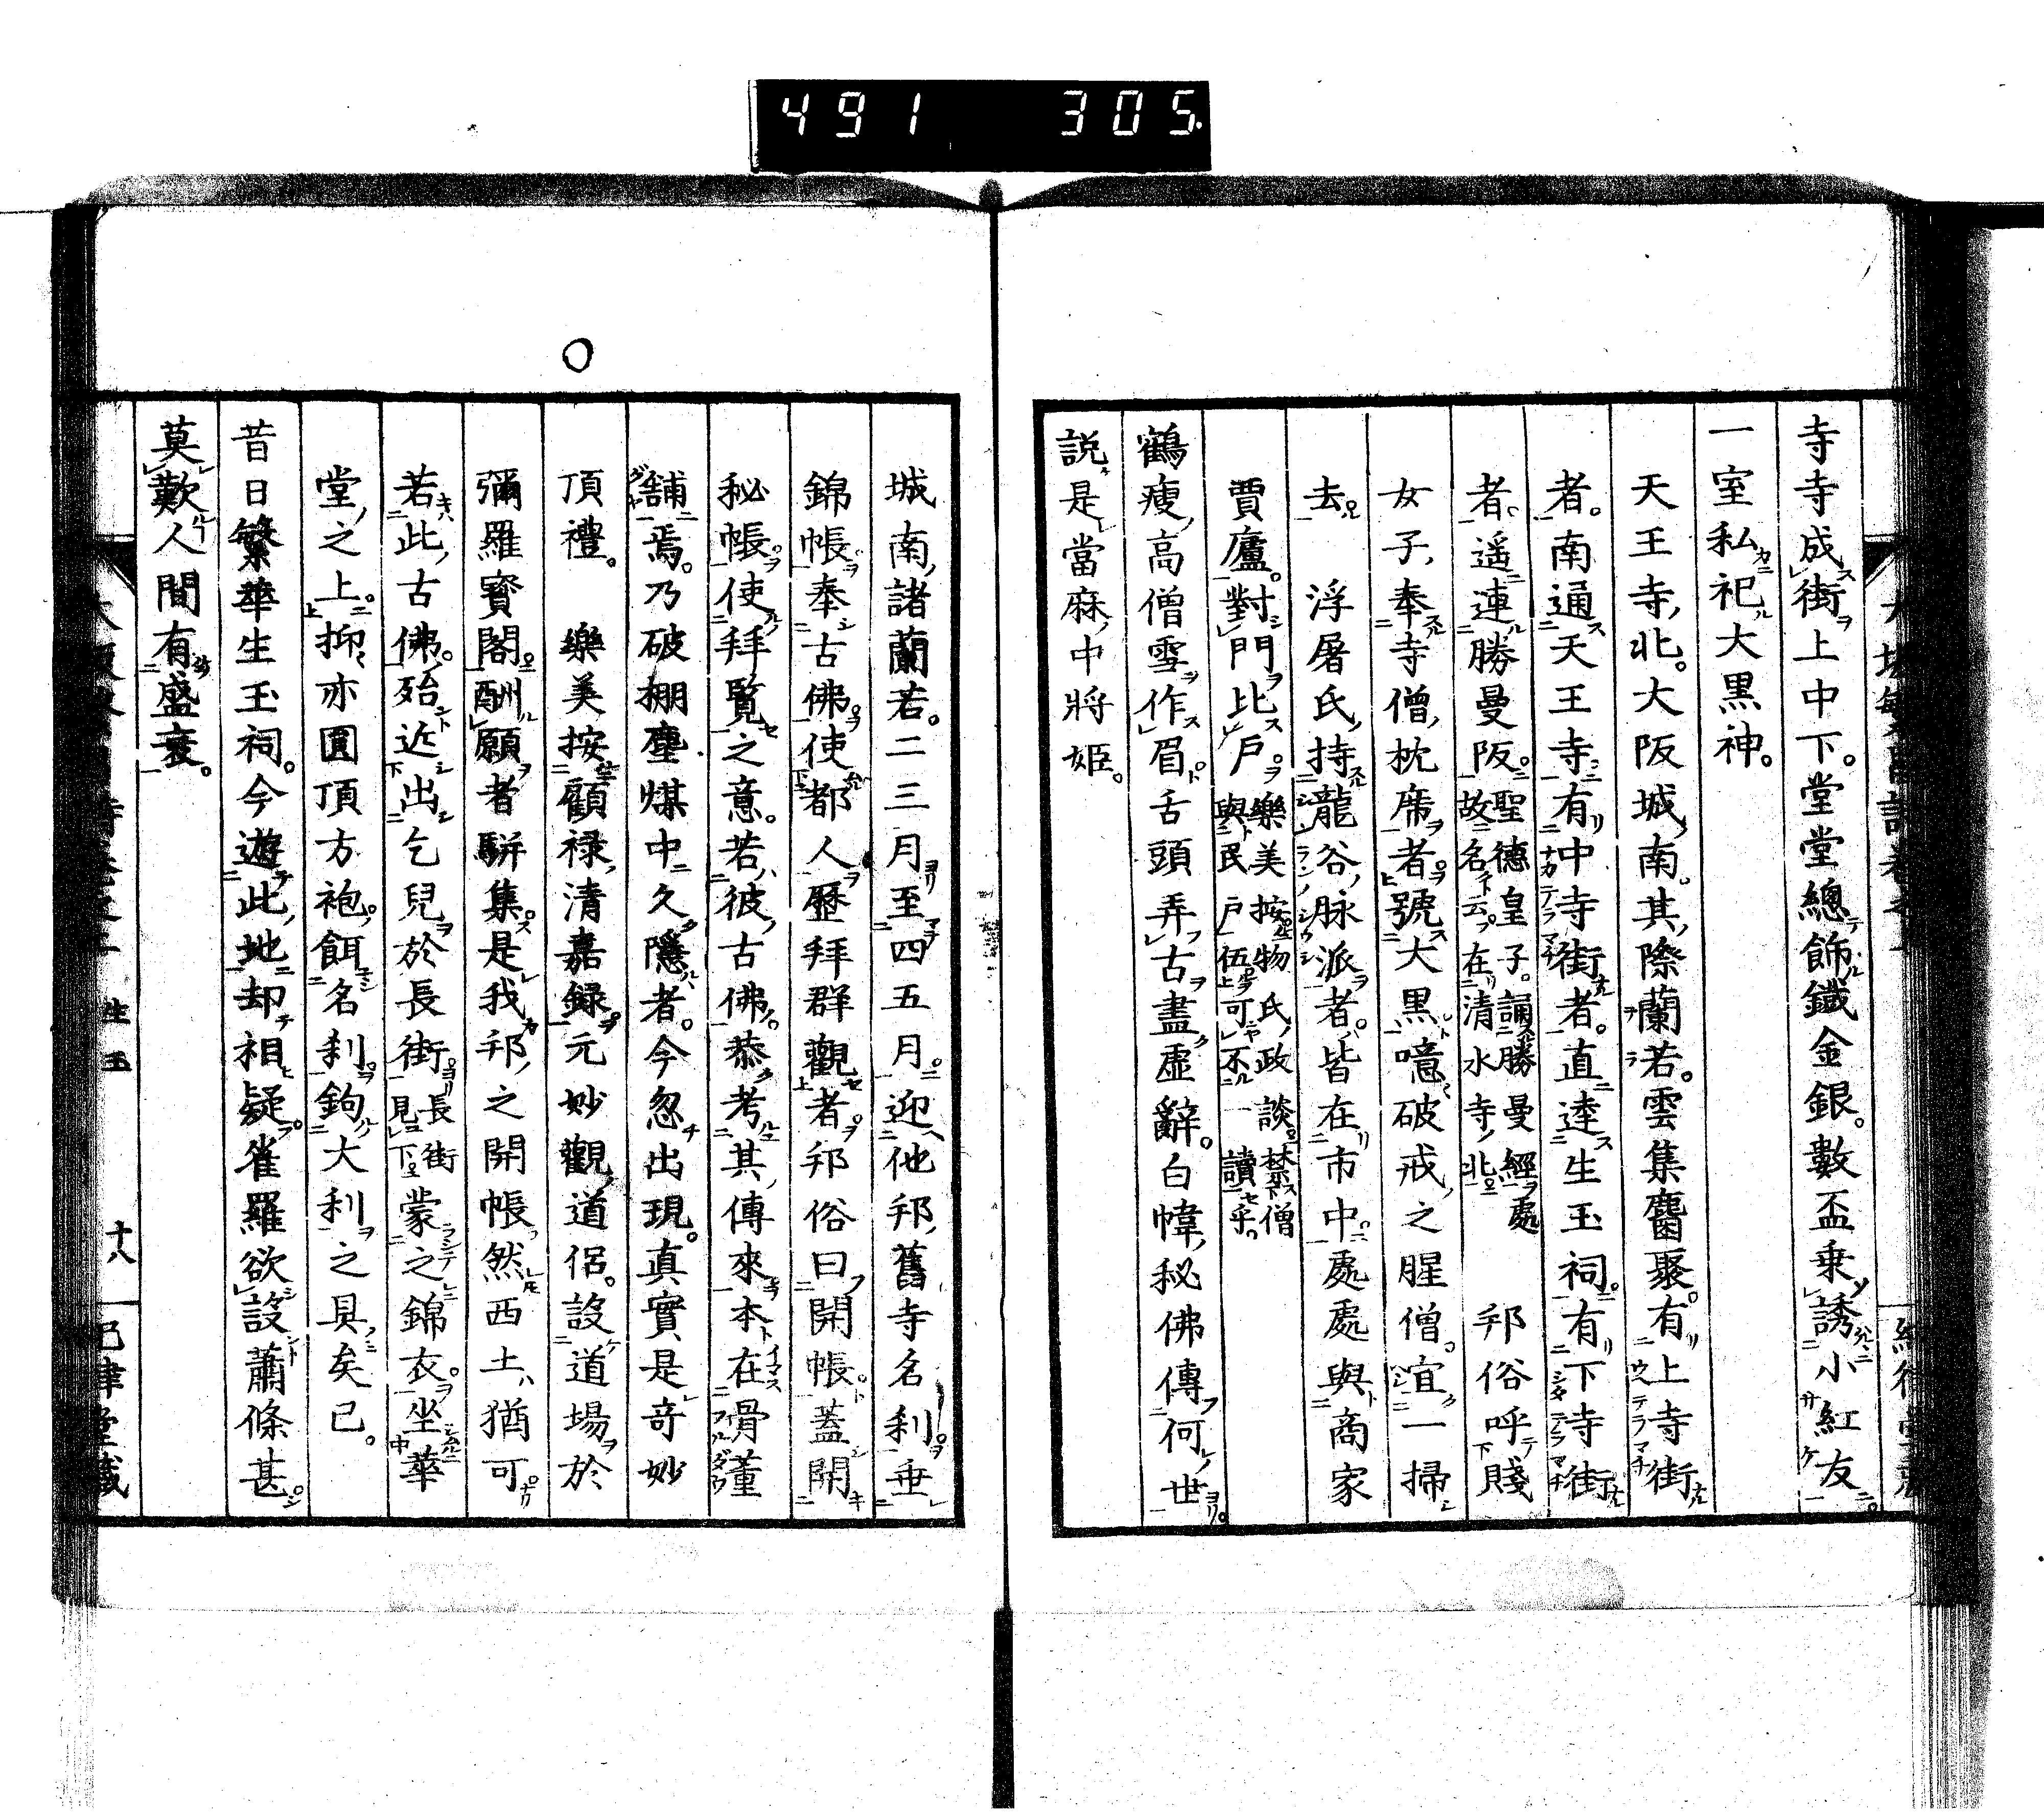 491 305
寺寺成街上中下。堂堂總飾鐵金銀。數盃乗誘小紅友
一室私祀大黒神。
天王寺北。大阪城南其際蘭若。雲集麕聚。有上寺街
者。南通天王寺有中寺街者。直達生玉祠。有下寺街
者遥連勝曼阪。聖德皇子。誦勝曼經處故名云。在清水寺北 邦俗呼賤
女子奉寺僧枕席者號大黒噫破戒之腥僧。宜一掃
去 浮屠氏持龍谷脉派者。皆在市中處處與商家
賈廬。對門比戸。樂美按物氏政談禁僧與民戸伍可不一讀乎。
鶴瘦高僧雪作眉舌頭弄古盡虛辭。白幃秘佛傳何世。
説是當麻中將姬。
城南諸蘭若。二三月至四五月。迎他邦舊寺名刹。垂
錦帳奉古佛。使都人歷拜群觀者。邦俗曰開帳蓋開
秘帳。使拜覽之意。若彼古佛。恭考其傳來本在骨董
舖焉。乃破棚塵煤中久隱者。今忽出現。真實是奇妙
頂禮。 樂美按顧祿清嘉録。元妙觀道侶。設道場於
彌羅寳閣酬願者駢集。是我邦之開帳然西土猶可
若此古佛。殆近出乞兒於長街。長街見下蒙之錦衣。坐華
堂之上。抑亦圓頂方袍。餌名利。鉤大利之具矣已。
昔日繁華生玉祠。今遊此地却相疑。雀羅欲設蕭條甚
莫歎人間有盛衰。
生玉
十八